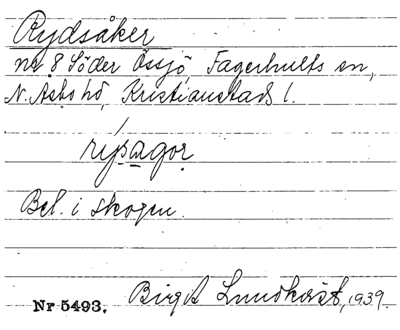 Rydsåker
nr 8 Söder Össjö, Fagerhults sn,
N. Åsbo hd, Kristianstads l.
rýsagor
Bel. i skogen.
Nr 5493. Birgit Lundkvist, 1939.